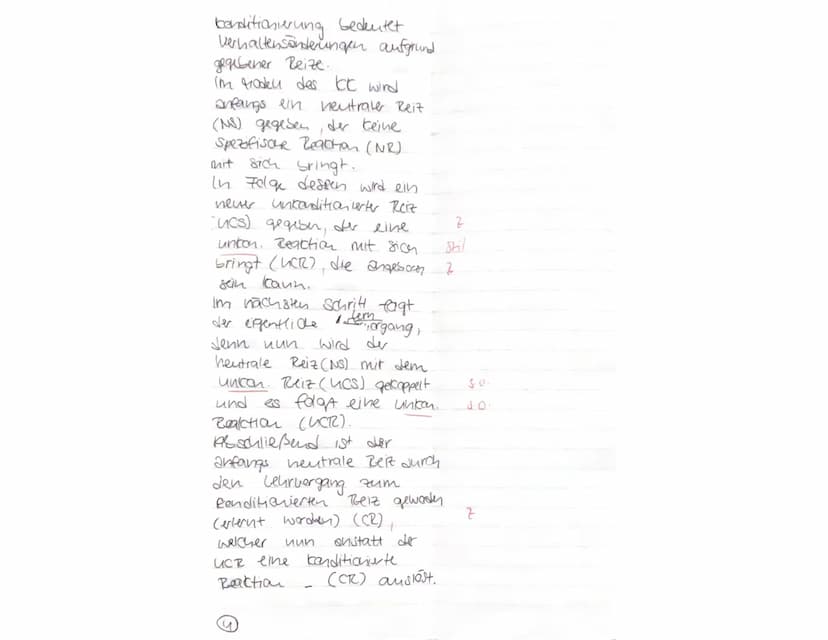 Konditionierung bedeutet
Verhaltensänderungen aufgrund
gegebener Reize.
Im Modell des KK wird
anfangs ein neutraler Reiz
(NS) gegeben, der keine
spezifische Reaction (NR)
mit sich bringt.
In Folge dessen wird ein
neuer unkonditionierter Reiz
UCS) gegeben, der eine Z
unkon. Reaction mit sich Stil
bringt (UCR), die angeboren Z
sein kann.
Im nächsten Schritt folgt
der eigentliche Lernvorgang,
denn nun wird der
neutrale Reiz (NS) mit dem
unkon. Reiz (UCS) gekoppelt s.o.
und es folgt eine unkon. s.o.
Reaktion (UCR).
Abschließend ist der
anfangs neutrale Reiz durch
den Lehrvorgang zum
konditionierten Reiz geworden
(erlernt worden) (CR), Z
welcher nun anstatt der
UCR eine konditionierte
Reaktion – (CR) auslöst.
4